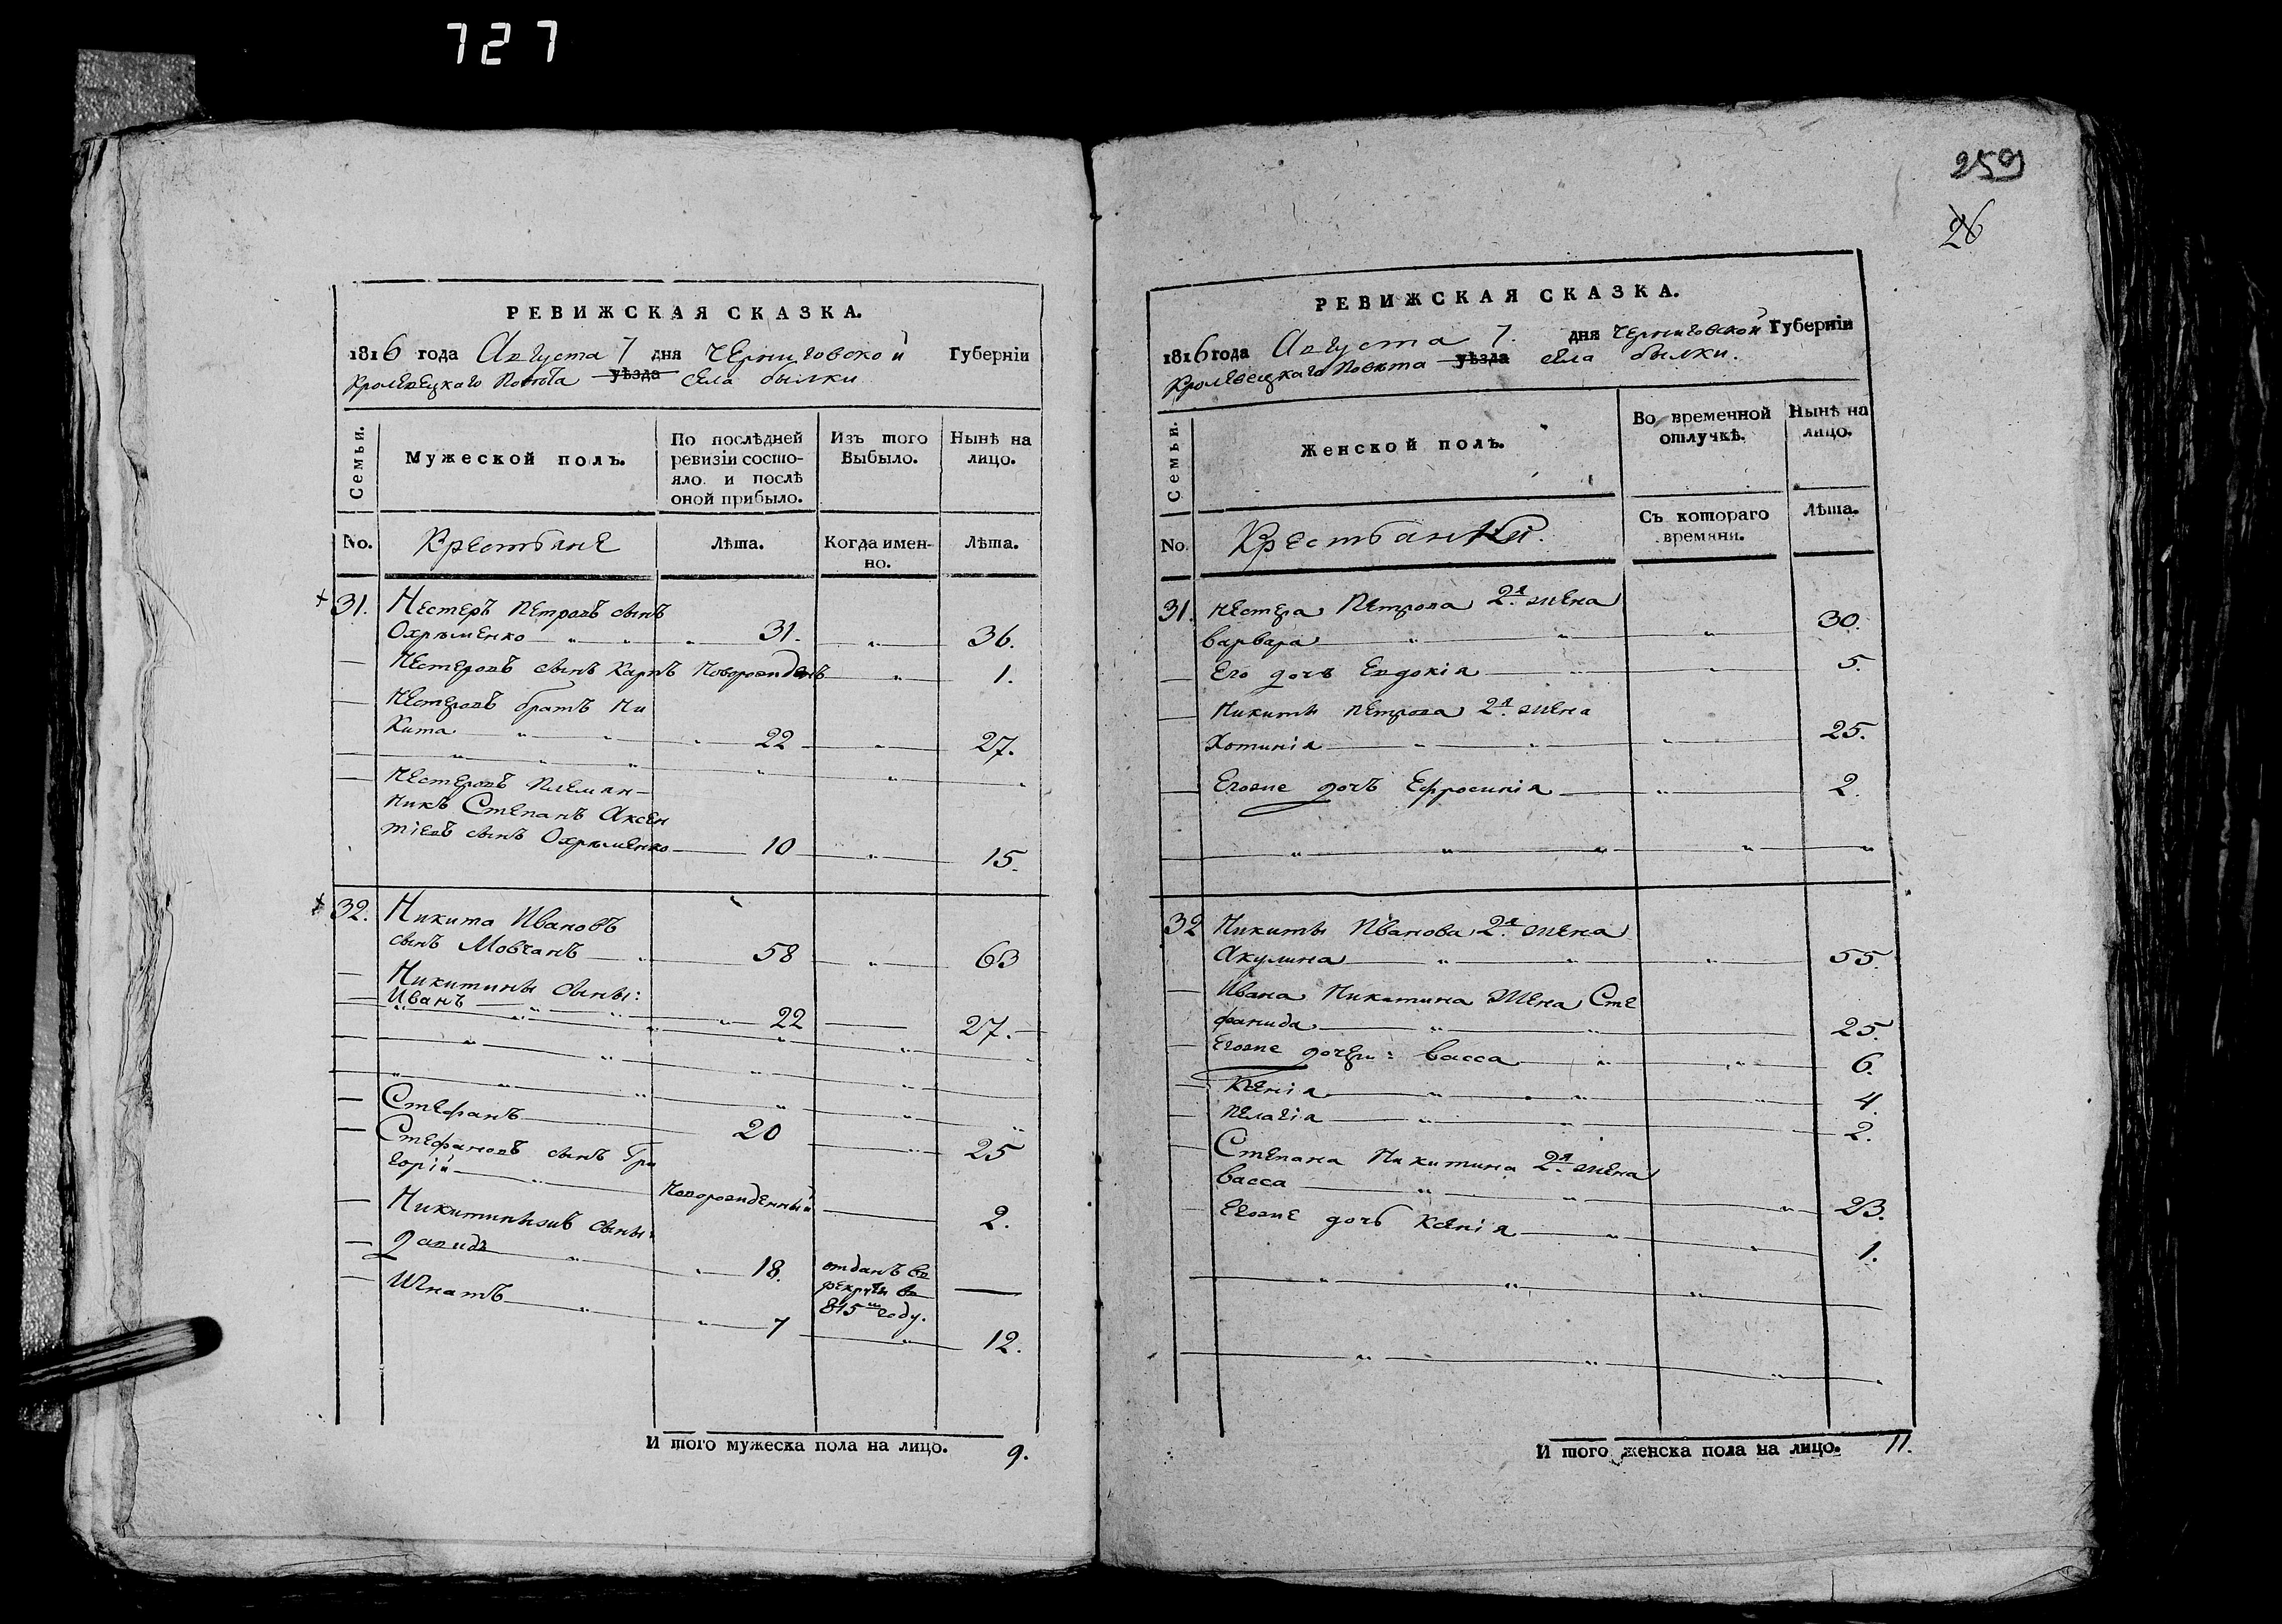 727
РЕВИЖСКАЯ СКАЗКА.
1816 года Августа 7 дня Черниговской Губерніи
Кролевецкаго Повѣта уѣзда села былки
Семьи.
Мужеской полъ.
По послѣдней ревизіи состо-
яло и послѣ оной прибыло.
Изъ того Выбыло.
Нынѣ на лицо.
No. Крестьяне Лѣта. Когда имен-
но. Лѣта.
31. Нестеръ Петровъ сынъ
Охрѣменко 31. 36.
Нестеровъ сынъ Карпъ Новорожденъ 1.
Нестеровъ братъ Ни
Кита 22 27.
Нестеровъ Племян-
никъ Степанъ Аксен
тіевъ сынъ Охрѣменко 10 15.
32. Никита Ивановъ
сынъ Мовчанъ 58 63
Никитины сыны:
Иванъ 22 27.
Стефанъ 20 25
Стефановъ сынъ Гри
горій Новорожденный 2.
Никитиныжъ сыны:
Давидъ 18. отданъ въ
рекруты въ
815м году.
Игнатъ 7 12.
И того мужеска пола на лицо. 9.
259
26
РЕВИЖСКАЯ СКАЗКА.
1816 года Августа 7. дня Черниговской Губерніи
Кролевецкаго Повѣта уѣзда села былки.
Семьи.
Женской полъ.
Во временной отлучкѣ.
Нынѣ на лицо.
No. Крестьянки. Съ котораго времяни. Лѣта.
31. Нестера Петрова 2я жена
Варвара 30.
Его дочь Евдокія 5.
Никиты Петрова 2я жена
Хотинія 25.
Егоже дочь Ефросинія 2.
32 Никиты Иванова 2я жена
Акулина 55.
Ивана Никитина Жена Сте
фанида 25.
Егоже дочери: Васса 6.
Ксенія 4.
Пелагія 2.
Степана Никитина 2я жена
Васса 23.
Егоже дочь Ксенія 1.
И того женска пола на лицо. 11.